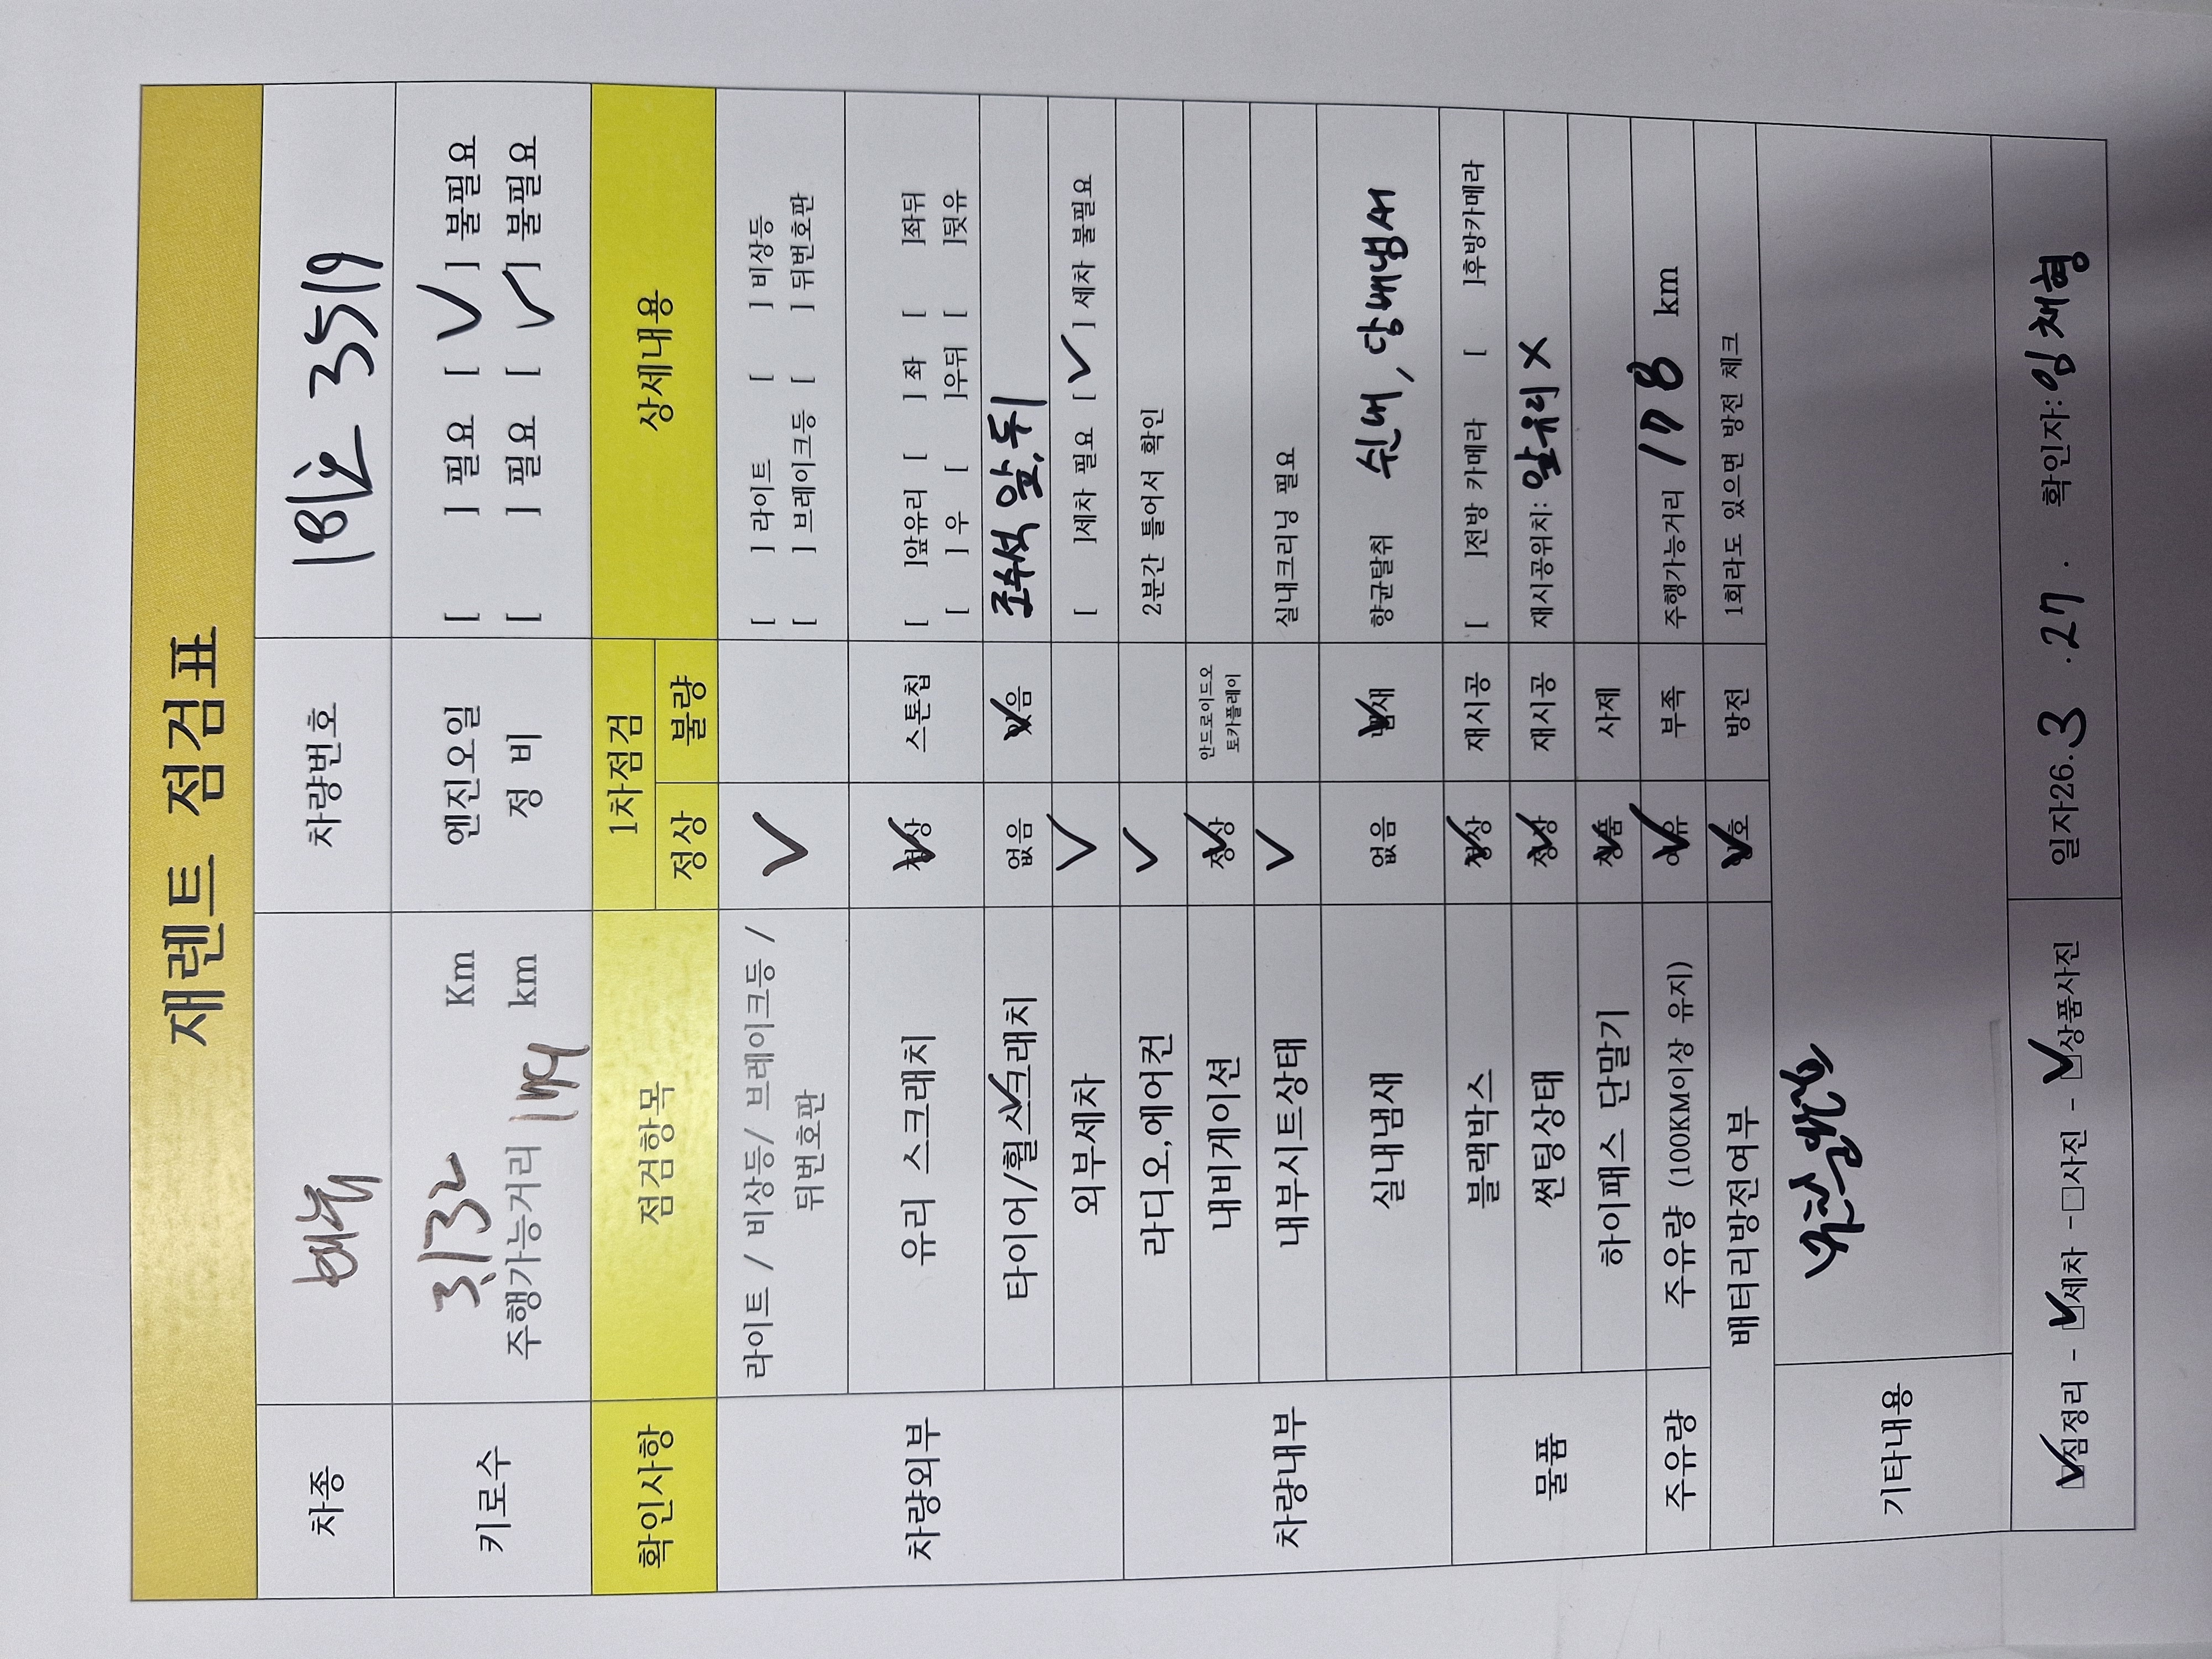 재렌트 점검표
차종 베뉴 차량번호 18하 3519
키로수 3,132 Km 엔진오일 [ ] 필요 [ ✓ ] 불필요
주행가능거리 179 km 정 비 [ ] 필요 [ ✓ ] 불필요
확인사항 점검항목 1차점검 상세내용
정상 불량
차량외부 라이트 / 비상등/ 브레이크등 / 뒤번호판 ✓ [ ] 라이트 [ ] 비상등
[ ] 브레이크등 [ ] 뒤번호판
유리 스크래치 정상 ✓ 스톤칩 [ ]앞유리 [ ] 좌 [ ]좌뒤
[ ] 우 [ ]우뒤 [ ]뒷유
타이어/휠스크래치 ✓ 없음 있음 ✓ 조수석 앞,뒤
외부세차 ✓ [ ]세차 필요 [ ✓ ] 세차 불필요
차량내부 라디오,에어컨 ✓ 2분간 틀어서 확인
내비게이션 정상 ✓ 안드로이드오토카플레이
내부시트상태 ✓ 실내크리닝 필요
실내냄새 없음 냄새 ✓ 향균탈취 쉰내, 담배냄새
물품 블랙박스 정상 ✓ 재시공 [ ]전방 카메라 [ ]후방카메라
썬팅상태 정상 ✓ 재시공 재시공위치: 앞유리 X
하이패스 단말기 정품 ✓ 사제
주유량 주유량 (100KM이상 유지) 여유 ✓ 부족 주행가능거리 178 km
배터리방전여부 양호 ✓ 방전 1회라도 있으면 방전 체크
기타내용
☑짐정리 - ☑세차 -□사진 - ☑상품사진 일자26.3.27. 확인자:임채형